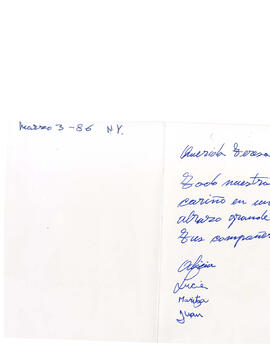 Marzo 3-86 N.Y.
Querida Teresa
Todo nuestro
cariño en un
abrazo grande
Tus compañer
Alicia
Lucía
Maritza
Juan